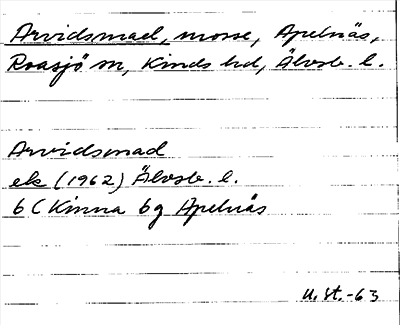 Arvidsmad, mosse, Apelnäs,
Roasjö sn, Kinds hd, Älvsb. l.
Arvidsmad
ek (1962) Älvsb. l.
6 C Kinna 6g Apelnäs
U. St. -63